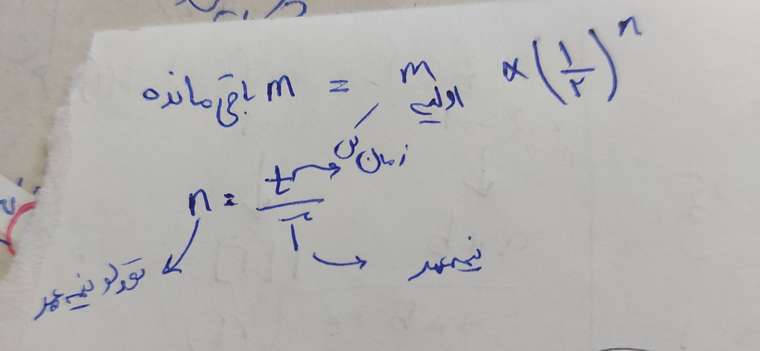 m باقی مانده = m اولیه × (۱/۲)^n
n = t/T → زمان کل
→ نیمه عمر
نیمه عمر